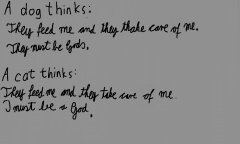 A dog thinks:
They feed me and they thake care of me.
They must be Gods.
A cat thinks:
They feed me and they take care of me.
I must be a
God.